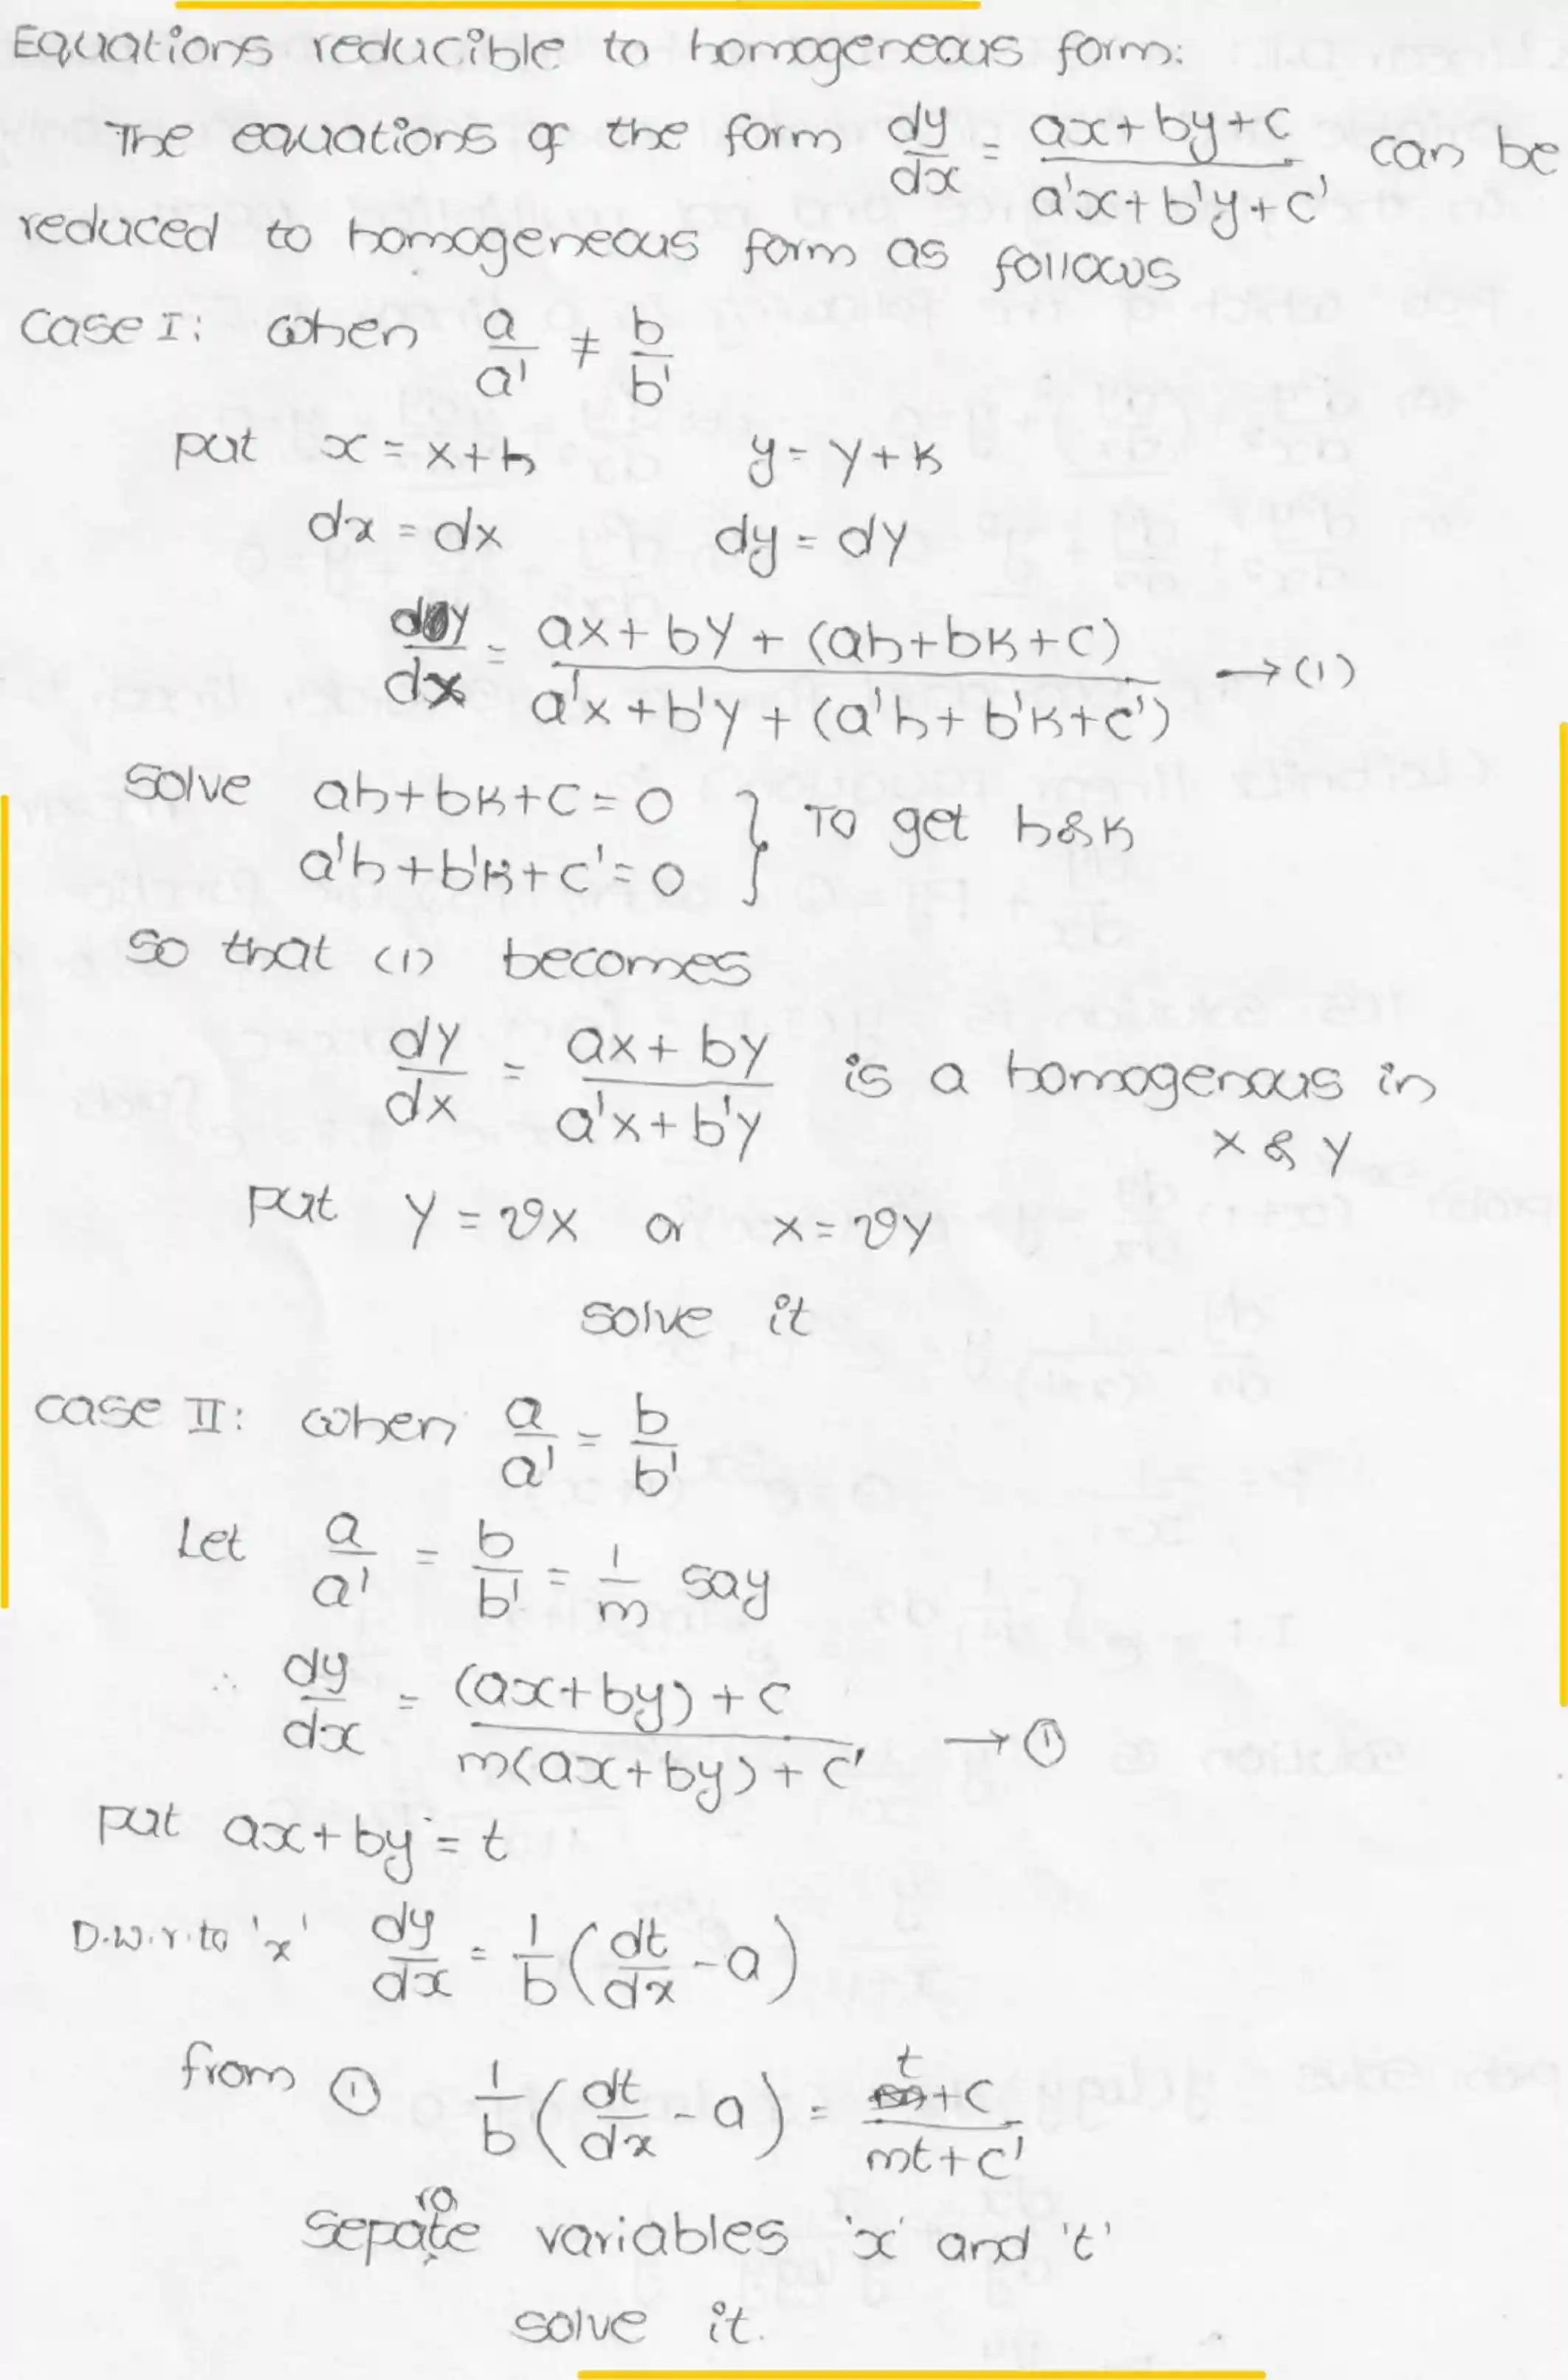 Equations reducible to homogeneous form:
The equations of the form dy/dx = (ax+by+c)/(a'x+b'y+c') can be
reduced to homogeneous form as follows
Case I: when a/a' ≠ b/b'
put x = X+h y = Y+k
dx = dX dy = dY
dY/dX = (aX+bY+(ah+bk+c))/(a'X+b'Y+(a'h+b'k+c')) → (1)
Solve ah+bk+c=0 } To get h&k
a'h+b'k+c'=0
So that (1) becomes
dY/dX = (aX+bY)/(a'X+b'Y) is a homogenous in
X & Y
Put Y = vX or X = vY
solve it
case II: when a/a' = b/b'
Let a/a' = b/b' = 1/m say
∴ dy/dx = ((ax+by)+c)/(m(ax+by)+c') → ①
put ax+by = t
D.w.r.to 'x' dy/dx = 1/b (dt/dx - a)
from ① 1/b (dt/dx - a) = (t+c)/(mt+c')
Separate variables 'x' and 't'
solve it.